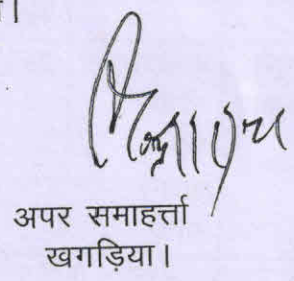 अपर समाहर्त्ता
खगड़िया।